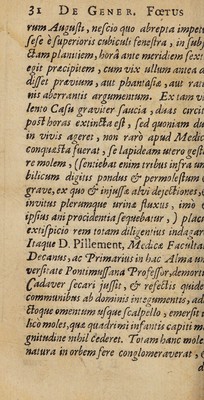 31 DE GENER. FŒTUS
rum Augusti, nescio quo abrepta impetu
sese è superioris cubiculi fenestra, in subje-
ctam plantiem, horâ ante meridiem sex
egit præcipitem, cum vix ullum antea d
disset prævium, aut phantasiæ, aut ratio
nis aberrantis argumentum. Ex tam vio
lento Casu graviter saucia, duas circi
post horas extincta est, sed quoniam du
in vivis ageret, non rarò apud Medic
conquæsta fuerat, se lapideam utero gesta
re molem, (sentiebat enim tribus infra um
bilicum digitis pondus & permolestum &
grave, ex quo & injussæ alvi dejectiones,
invitus plerumque urinæ fluxus, imò &
ipsius ani procidentia sequebatur,) placu
extispicio rem totam diligentius indagar
Itaque D. Pillement, Medicæ Facultat
Decanus, ac Primarius in hac Alma un
versitate Pontimussana Professor, demort
Cadaver secari jussit, & refectis quide
communibus abdominis integumentis, ad
ctoque omentum usque scalpello, emersit i
lico moles, quæ quadrimi infantis capiti ma
gnitudine nihil cederet. Totam hanc mole
natura in orbem ferè conglomeraverat, e